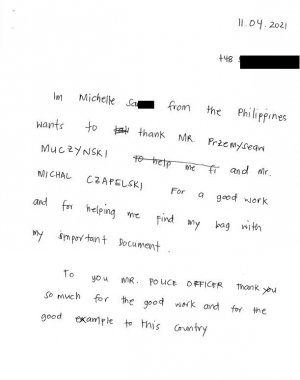 11.04.2021
+48 S
Im Michelle Sa from the Philippines
wants to thank MR. Przemyslaw
MUCZYNSKI to help me fi and mr.
MICHAL CZAPELSKI For a good work
and for helping me find my bag with
my important Document.
To you MR. POLICE OFFICER thank you
so much for the good work and for the
good example to this country